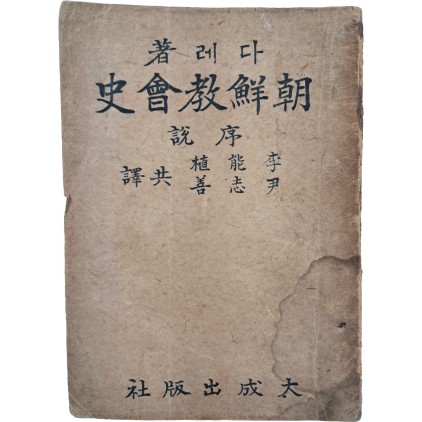 다레 著
朝鮮教會史
序說
李能植
尹志善
共譯
大成出版社